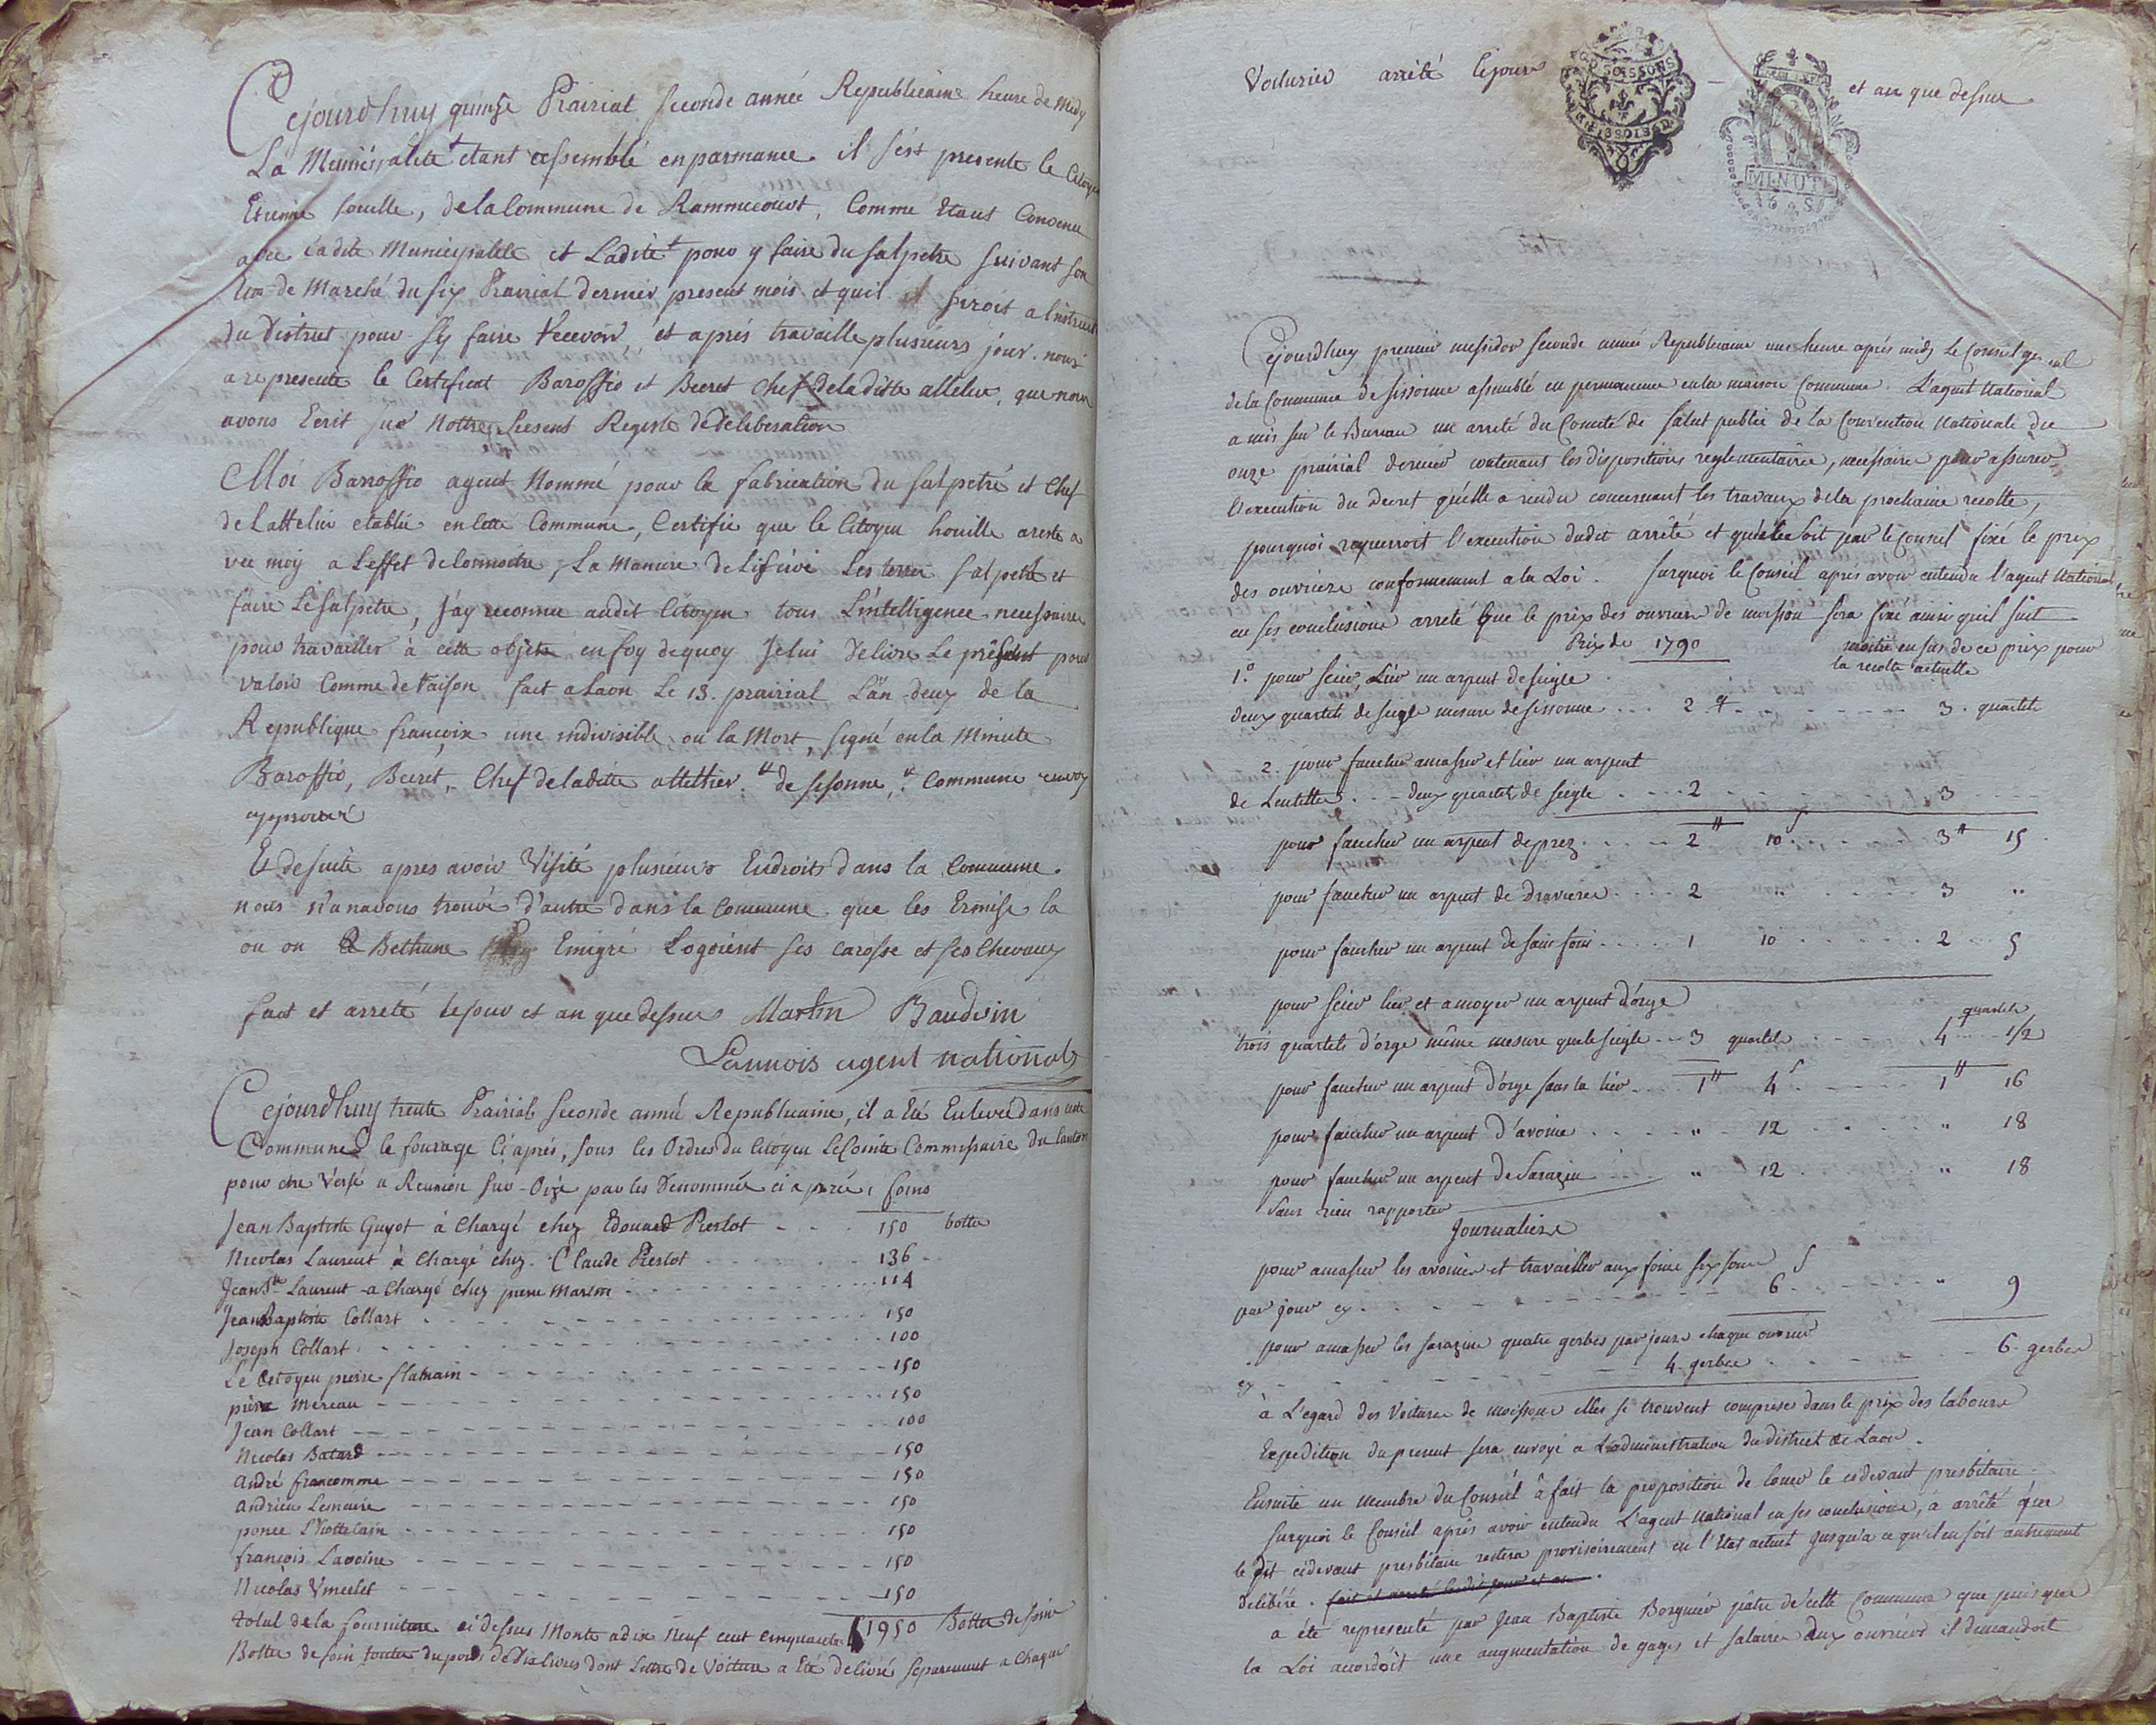 Cejourdhuy quinze Prairial seconde année Republicaine heure de Midy
La Municipalité etant assemblé en parmance. il s'est presenté le Citoyen
Etienne houille, de la Commune de Rammecourt, Comme etant Convenu
avec ladite Municipalité et Ladite pour y faire du salpetre suivant son
de Marché du six Prairial dernier present mois et quil seroit a
du District pour s'y faire recevoir, et aprés travaille plusieurs jour. nous
a representé le Certificat Baroffio et Beeret chef de la ditte attelier, que nous
avons Ecrit sur Nottre present Registe de deliberation
Moi Barroffio agent Nommé pour la fabrication du salpetre et Chef
de Lattelier etablie en Cette Commune, Certifie que le Citoyen houille a resté a
vec moy a Leffet de Connoitre, La Maniere de Lisivié Les terres salpetre et
faire Le salpetre, J'ay reconnu audit Citoyen tous L'intelligence necessaire
pour travailler à cette objete en foy dequoy Je lui delivre Le présent pour
valoir Comme de raison fait a Laon Le 13. prairial L'an deux de la
Republique françoise une indivisible ou la Mort, signé en la Minute
Baroffio, Beeret, Chef de la ditte attelhier. de sissonne, Commune
approuvé
Et de suite apres avoir Visité plusieurs Endroits dans la Commune.
nous n'anavons trouvé d'autre dans la Commune que les Ermise la
ou on Bethune Emigré Logoient ses carosse et ses Chevaux
fait et arreté le jour et an que dessus Martin Baudoin
Lannois agent national
Cejourdhuy trente Prairial seconde anné Republicaine, il a Eté Enlevé dans cette
Commune le fourage Ci aprés, sous les Ordres du Citoyen LeCointe Commissaire du Canton
pour etre Versé a Reunion sur Oize par les Denommés ci aprés, foins
Jean Baptiste Guyot à Chargé chez Edouard Pierlot - - - 150 bottes
Nicolas Laurent à Chargé chez. Claude Pierlot 136
Jean Bte Laurent a Chargé chez pierre Martin 114
Jean Baptiste Collart 150
Joseph Collart 100
Le Citoyen pierre flamain 150
pierre Mereau 150
Jean Collart 100
Nicolas Batard 150
André francomme 150
andrieu Lemaire 150
ponce L'hottelain 150
françois Lavoine 150
Nicolas Vmeelet 150
total de la fourniture ci dessus Monte a dix Neuf cent Cinquante 1950 Bottes de foin
Bottes de foin toutes du poids de Dix livres dont Lettre de Voiture a Eté delivré separement a Chaque
Voiturier arrêté lejour et an que dessus
GD SOISSONS
MINUTE
Cejourdhuy premier messidor seconde année Republicaine une heure aprés midy le Conseil general
de la Commune de sissonne assemblé en permanence en la maison Commune. L'agent National
a mis sur le Bureau un arreté du Comité de salut public de la Convention Nationale du
onze prairial dernier contenant les dispositions reglementaires, necessaires pour assurer
l'execution du Decret qu'elle a rendu concernant les travaux de la prochaine recolte,
pourquoi requerroit l'execution dudit arrêté et qu'il soit par le Conseil fixé le prix
des ouvriers conformement a la Loi. surquoi le Conseil aprés avoir entendu l'agent National
en ses conclusions arreté que le prix des ouvriers de moisson sera fixé ainsi quil suit
Prix de 1790 moitié en sus de ce prix pour
la recolte actuelle
1.° pour scier, Lier un arpent de seigle
deux quartels de seigle mesure de sissonne 2 q. 3. quartels
2. pour faucher amasser et lier un arpent
de Lentilles deux quartels de seigle 2 3
pour faucher un arpent de prez 2 tt 10 s 3 tt 15
pour faucher un arpent de Dravieres 2 " 3 "
pour faucher un arpent de sain foin 1 10 2 5
pour scier lier et amoyer un arpent d'orge
trois quartels d'orge même mesure que le seigle 3 quartels 4 quartels 1/2
pour faucher un arpent d'orge sans la lier 1 tt 4 s 1 tt 16
pour faucher un arpent d'avoine " 12 " 18
pour faucher un arpent de Sarazin " 12 " 18
sans rien rapporter
Journaliers
pour amasser les avoines et travailler aux foins six sous s
par jour cy 6 " 9
pour amasser les sarazins quatre gerbes par jour chaque ouvrier
cy 4. gerbes 6. gerbes
à L'egard des Voitures de moisson elles se trouvent comprise dans le prix des labours
Expedition du present sera envoyé a L'administration du district de Laon.
Ensuite un membre du Conseil à fait la proposition de louer le cidevant presbitaire
surquoi le Conseil aprés avoir entendu L'agent National en ses conclusions, a arrêté que
le dit cidevant presbitaire restera provisoirement en l'Etat actuel jusqu'a ce qu'il en soit autrement
Délibéré. fait et arreté ledit jour et an
a été representé par Jean Baptiste Borgnier pâtre de cette Commune que puisque
la Loi accordoit une augmentation de gages et salaires aux ouvriers il demandoit